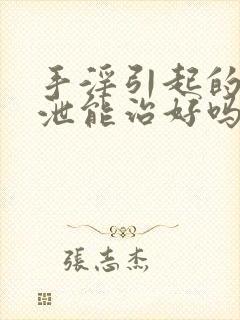 手淫引起的
泄能治好吗
張志杰